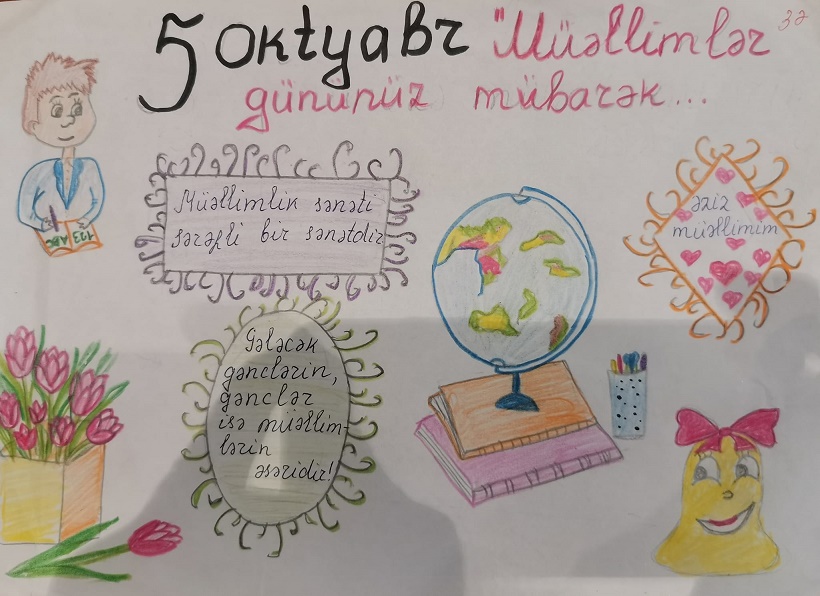 5 oktyabr "Müəllimlər 3ə
gününüz mübarək...
Müəllimlik sənəti
şərəfli bir sənətdir
əziz
müəllimim
123 ABC
Gələcək
gənclərin,
gənclər
isə müəllim-
lərin
əsəridir!